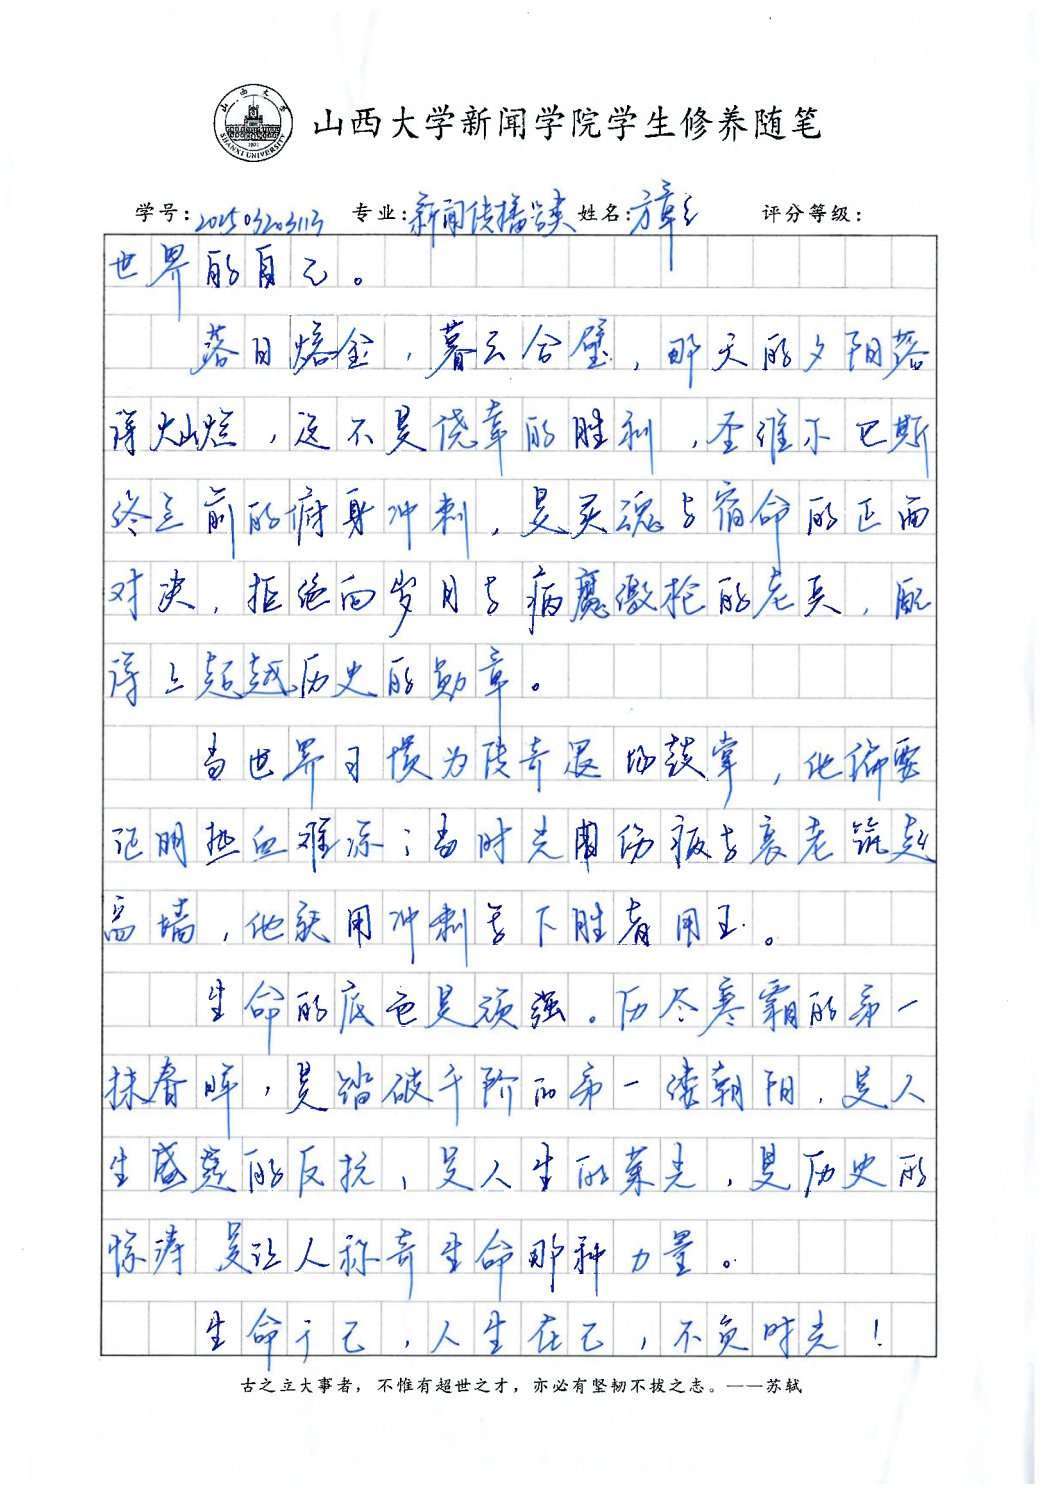 山西大学
SHANXI UNIVERSITY
1902
山西大学新闻学院学生修养随笔
学号: 专业:新闻传播学类 姓名: 评分等级:
世界的自己。
落日熔金,暮云合璧,那天的夕阳落
得灿烂,这不是侥幸的胜利,圣维尔巴斯
终点前的俯身冲刺,是灵魂与宿命的正面
对决,拒绝向岁月与病魔缴枪的老兵,配
得上超越历史的勋章。
当世界习惯为传奇退场鼓掌,他偏要
证明热血难凉;当时光用伤病与衰老筑起
高墙,他就用冲刺写下胜者为王。
生命的底色是顽强。历尽寒霜的第一
抹春晖,是踏破千阶的第一缕朝阳,是人
生盛宴的反抗,是人生的荣光,是历史的
惊涛 是让人称奇生命那种力量。
生命于己,人生在己,不负时光!
古之立大事者,不惟有超世之才,亦必有坚韧不拔之志。——苏轼